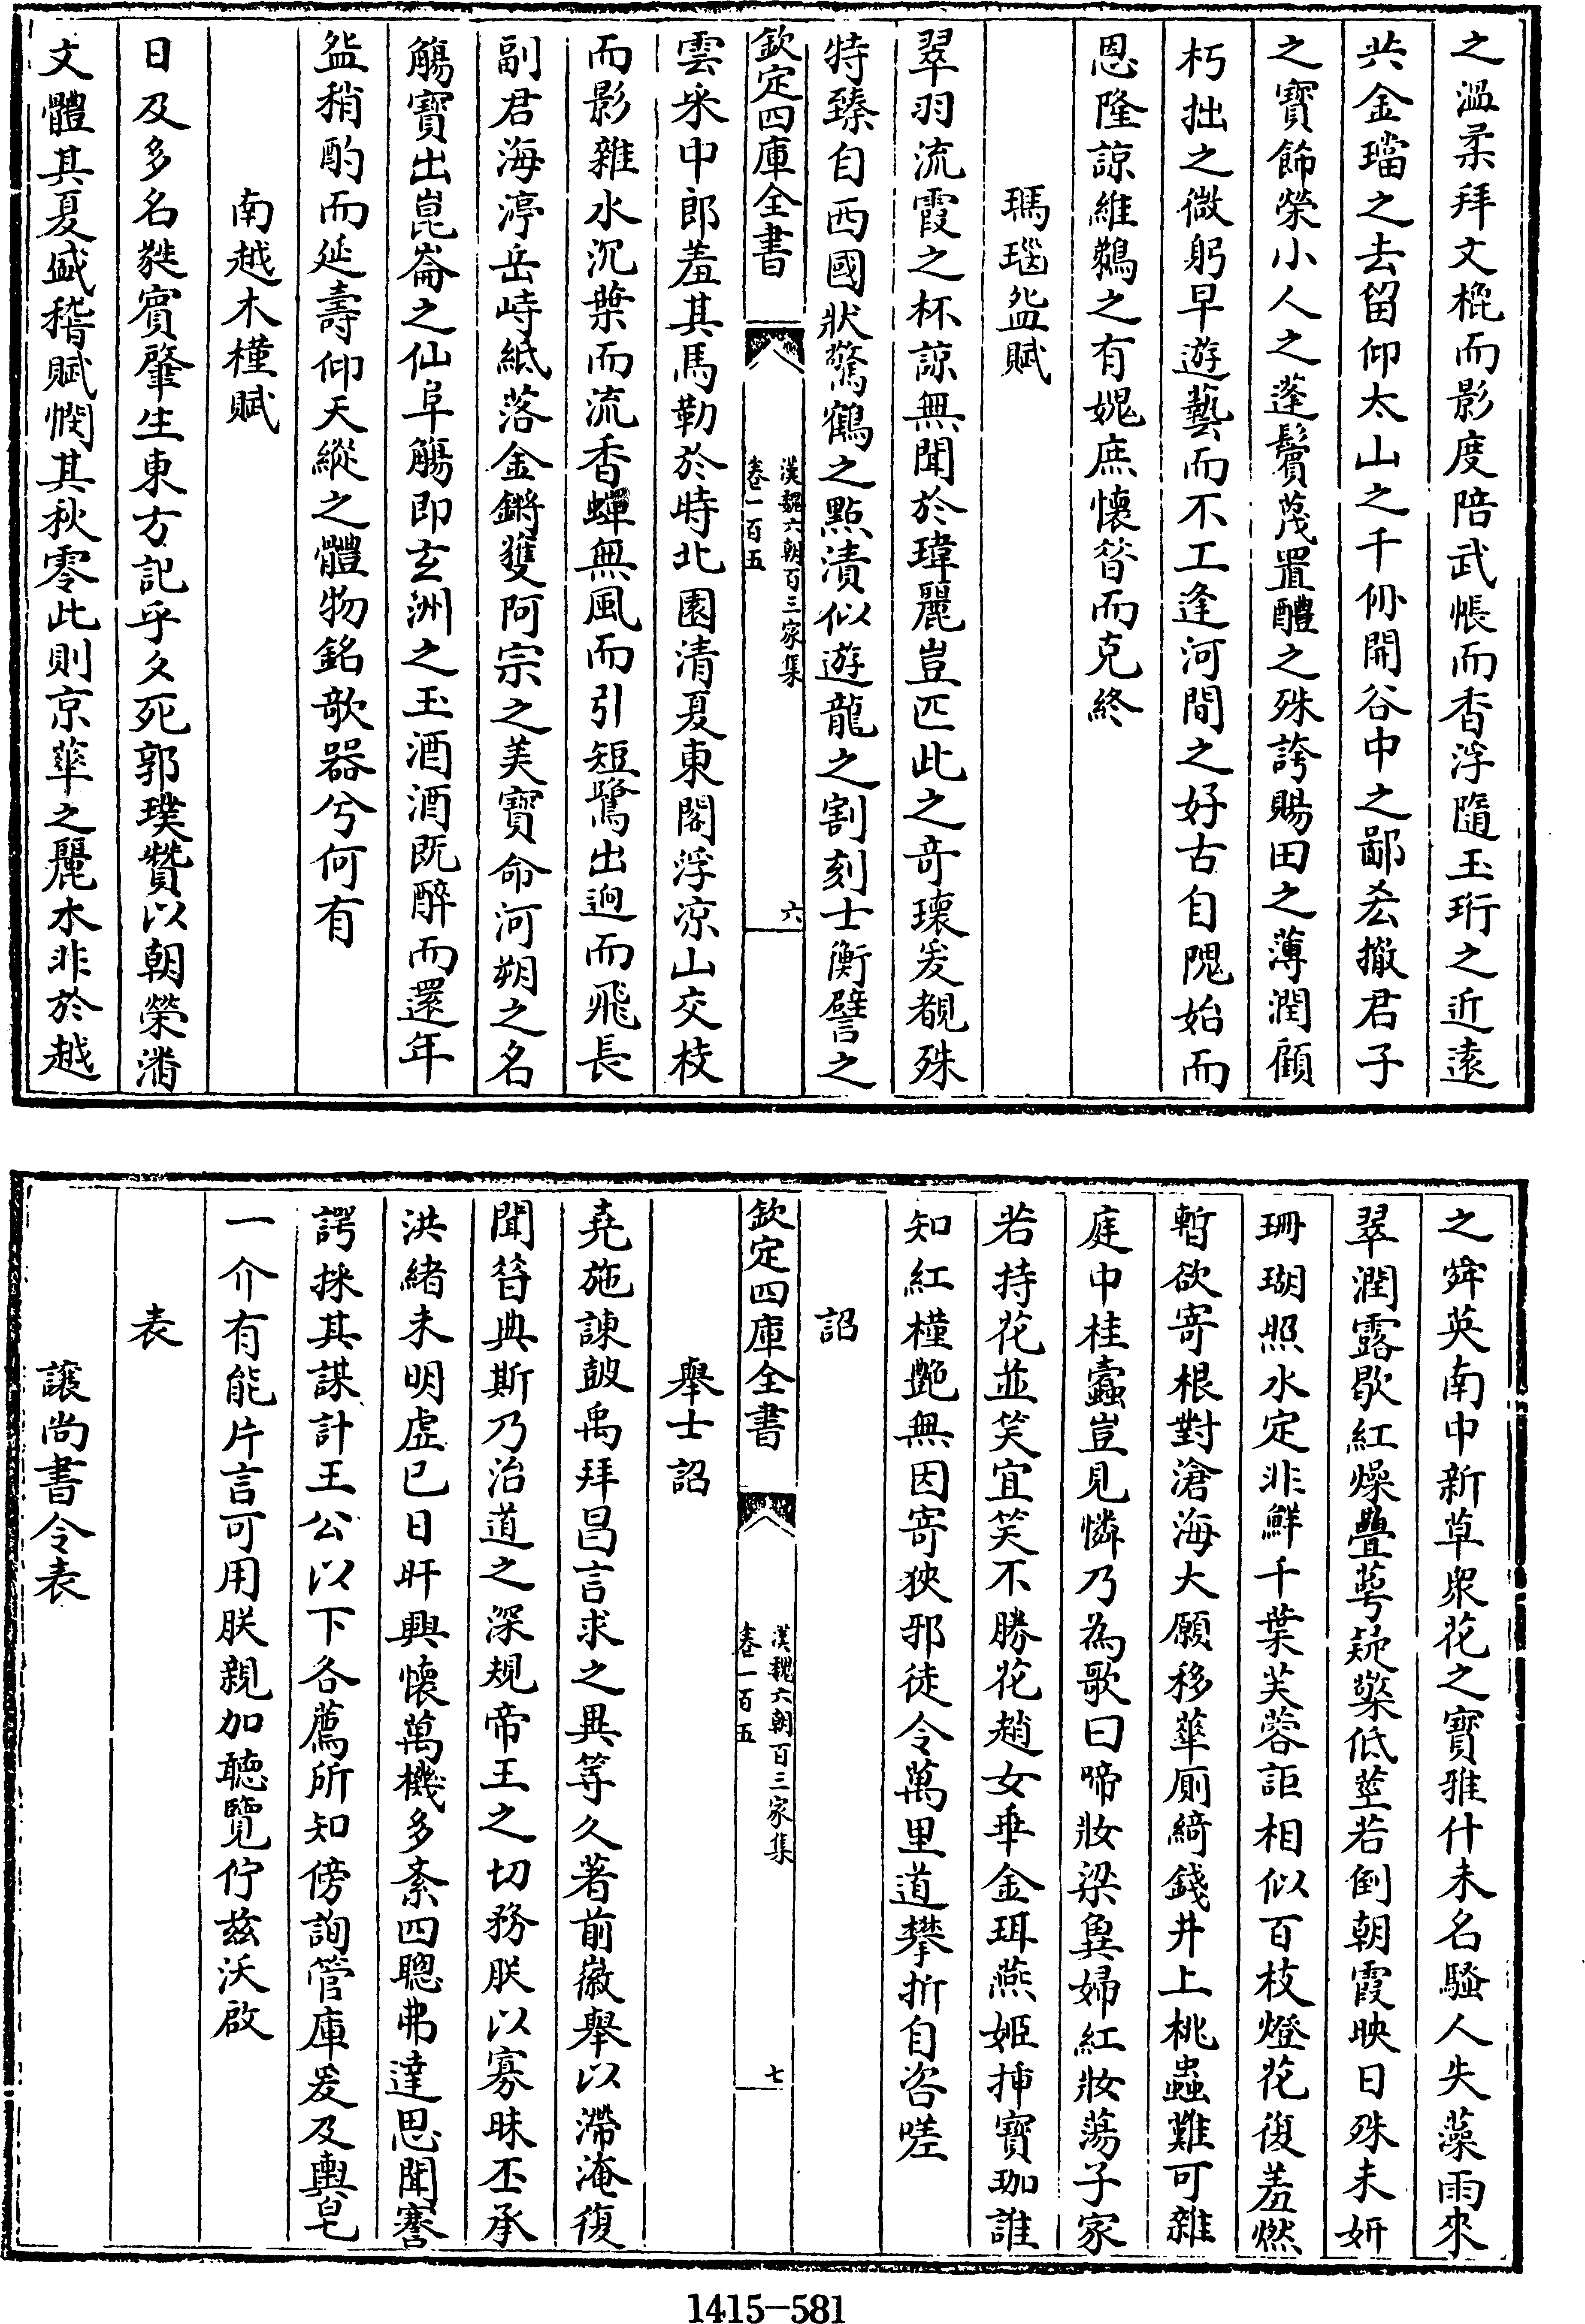 之溫柔拜文棍而影度陪武帳而香浮隨玉珩之近遠
共金璫之去留仰太山之千仞開谷中之鄙忝撤君子
之寶飾榮小人之蓬鬢蔑置醴之殊誇賜田之薄潤顧
朽拙之微躬早遊藝而不工逢河間之好古自隗始而
恩隆諒維鵜之有媿庶懷昝而克終
瑪瑙盌賦
翠羽流霞之杯諒無聞於瑋麗豈匹此之奇瓌爰覩殊
特臻自西國狀驚鶴之點漬似遊龍之割刻士衡譬之
欽定四庫全書
漢魏六朝百三家集
卷一百五
六
雲采中郎羞其馬勒於時北園清夏東閣浮凉山交枝
而影雜水沉葉而流香蟬無風而引短鷺出迥而飛長
副君海渟岳峙紙落金鏘獲阿宗之美寶命河朔之名
觴寶出崑崙之仙阜觴即玄洲之玉酒酒既醉而還年
盌稍酌而延壽仰天縱之體物銘歌器兮何有
南越木槿賦
日及多名蕤賓肇生東方記乎夕死郭璞贊以朝榮潘
文體其夏盛嵇賦憫其秋零此則京華之麗木非於越
之舜英南中新草衆花之寶雅什未名騷人失藻雨來
翠潤露歇紅燥疊萼疑檠低莖若倒朝霞映日殊未妍
珊瑚照水定非鮮千葉芙蓉詎相似百枝燈花復羞燃
暫欲寄根對滄海大願移華廁綺錢井上桃蟲難可雜
庭中桂蠹豈見憐乃為歌曰啼妝梁冀婦紅妝蕩子家
若持花並笑宜笑不勝花趙女垂金珥燕姬揷寶珈誰
知紅槿艶無因寄狹邪徒令萬里道攀折自咨嗟
詔
欽定四庫全書
漢魏六朝百三家集
卷一百五
七
舉士詔
堯施諫鼓禹拜昌言求之異等久著前徽舉以滯淹復
聞昝典斯乃治道之深規帝王之切務朕以寡昧丕承
洪緒未明虛已日旰興懷萬機多紊四聰弗達思聞謇
諤採其謀計王公以下各薦所知傍詢管庫爰及輿皂
一介有能片言可用朕親加聽覽佇兹沃啟
表
讓尚書令表
1415-581